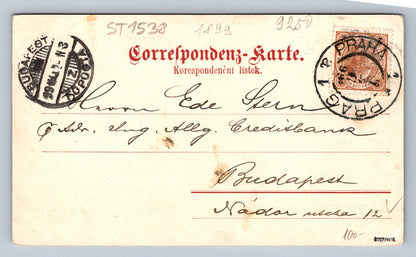 ST1538
1899
925
Correspondenz-Karte.
Korespondenční lístek.
BUDAPEST
PRAG 1 PRAHA 1
Herrn Ede Stern
p Adr. Ung. Allg. Creditbank
Budapest
Nádor utcza 12
100-